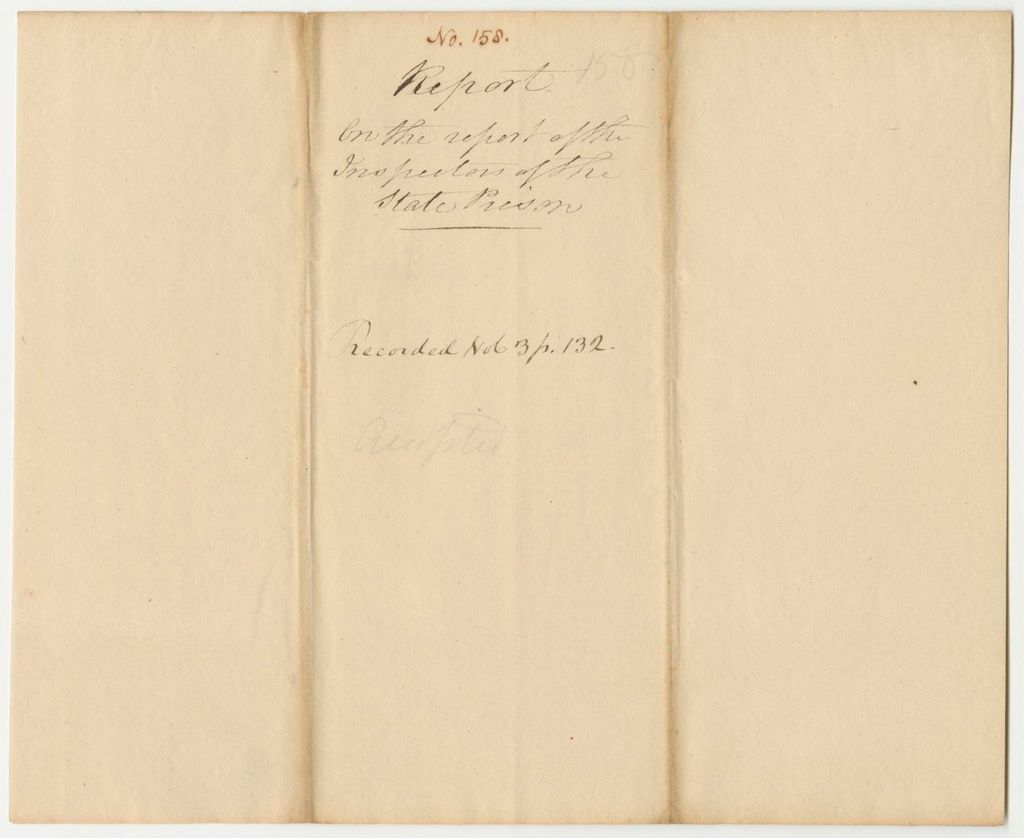 No. 158.
158.
Report
On the report of the
Inspectors of the
State Prison
Recorded Vol 3 p. 132.
Accepted